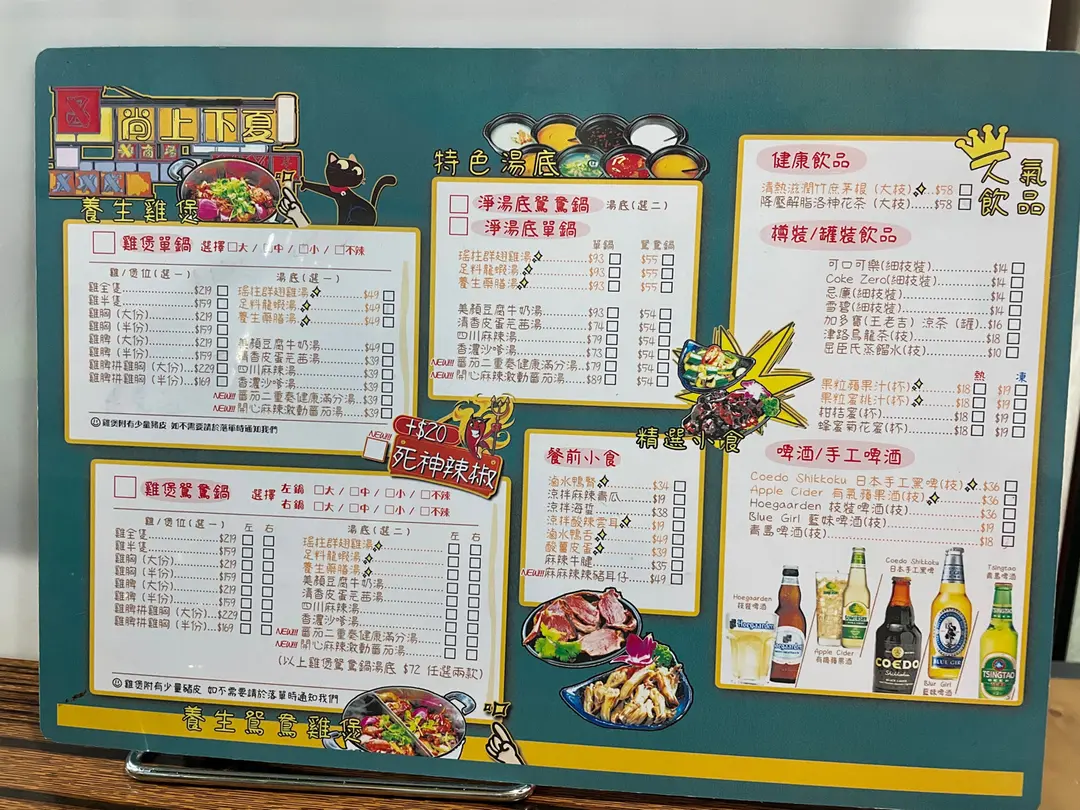 尚上下夏
養生雞煲
雞煲單鍋 選擇 □大 / □中 / □小 / □不辣
雞/煲位(選一)
雞全隻 $219
雞半隻 $159
雞胸 (大份) $219
雞胸 (半份) $159
雞髀 (大份) $219
雞髀 (半份) $159
雞髀拼雞胸 (大份) $229
雞髀拼雞胸 (半份) $169
湯底(選一)
瑤柱群翅雞湯 $49
足料龍蝦湯 $49
養生藥膳湯 $49
美顏豆腐牛奶湯 $49
清香皮蛋芫茜湯 $39
四川麻辣湯 $39
香濃沙嗲湯 $39
NEW!!! 蕃茄二重奏健康滿分湯 $39
NEW!!! 開心麻辣激動蕃茄湯 $39
雞煲附有少量豬皮 如不需要請於落單時通知我們
NEW!!! +$20
死神辣椒
雞煲鴛鴦鍋 選擇 左鍋 □大 / □中 / □小 / □不辣
右鍋 □大 / □中 / □小 / □不辣
雞/煲位(選一) 左 右
雞全隻 $219
雞半隻 $159
雞胸 (大份) $219
雞胸 (半份) $159
雞髀 (大份) $219
雞髀 (半份) $159
雞髀拼雞胸 (大份) $229
雞髀拼雞胸 (半份) $169
湯底(選二) 左 右
瑤柱群翅雞湯
足料龍蝦湯
養生藥膳湯
美顏豆腐牛奶湯
清香皮蛋芫茜湯
四川麻辣湯
香濃沙嗲湯
NEW!!! 蕃茄二重奏健康滿分湯
NEW!!! 開心麻辣激動蕃茄湯
(以上雞煲鴛鴦鍋湯底 $72 任選兩款)
雞煲附有少量豬皮 如不需要請於落單時通知我們
養生鴛鴦雞煲
特色湯底
淨湯底鴛鴦鍋 湯底(選二)
淨湯底單鍋
單鍋 鴛鴦鍋
瑤柱群翅雞湯 $93 $55
足料龍蝦湯 $93 $55
養生藥膳湯 $93 $55
美顏豆腐牛奶湯 $93 $54
清香皮蛋芫茜湯 $74 $54
四川麻辣湯 $79 $54
香濃沙嗲湯 $73 $54
NEW!!! 蕃茄二重奏健康滿分湯 $79 $54
NEW!!! 開心麻辣激動蕃茄湯 $89 $54
精選小食
餐前小食
滷水鴨腎 $34
涼拌麻辣青瓜 $19
涼拌海蜇 $38
涼拌酸辣雲耳 $19
滷水鴨舌 $49
酸薑皮蛋 $39
麻辣牛腱 $35
NEW!!! 麻麻辣辣豬耳仔 $49
人氣飲品
健康飲品
清熱滋潤竹蔗茅根 (大枝) $58
降壓解脂洛神花茶 (大枝) $58
樽裝/罐裝飲品
可口可樂(細枝裝) $14
Coke Zero(細枝裝) $14
忌廉(細枝裝) $14
雪碧(細枝裝) $14
加多寶(王老吉) 涼茶 (罐) $16
津路烏龍茶(枝) $18
屈臣氏蒸餾水(枝) $10
熱 凍
果粒蘋果汁(杯) $18 $19
果粒蜜桃汁(杯) $18 $19
柑桔蜜(杯) $18 $19
蜂蜜菊花蜜(杯) $18 $19
啤酒/手工啤酒
Coedo Shikkoku 日本手工黑啤(枝) $36
Apple Cider 有氣蘋果酒(枝) $36
Hoegaarden 枝裝啤酒(枝) $36
Blue Girl 藍妹啤酒(枝) $19
青島啤酒(枝) $18
Hoegaarden
枝裝啤酒
Hoegaarden
Apple Cider
有氣蘋果酒
Coedo Shikkoku
日本手工黑啤
COEDO
Shikkoku
Blue Girl
藍妹啤酒
BLUE GIRL
Tsingtao
青島啤酒
TSINGTAO